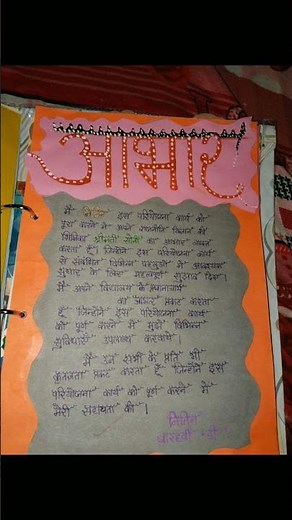 आभार
मैं नितिन इस परियोजना कार्य को
पूरा करने में अपने राजनीति विज्ञान की
शिक्षिका श्रीमती सोनी का आभार व्यक्त
करता हूँ। जिन्होंने इस परियोजना कार्य
से संबंधित विभिन्न पहलुओं में आवश्यक
सुधार के लिए महत्वपूर्ण सुझाव दिए।
मैं अपने विद्यालय के प्रधानाचार्य
का आभार प्रकट करता
हूँ जिन्होंने इस परियोजना कार्य
को पूर्ण करने में मुझे विभिन्न
सुविधाएँ उपलब्ध करवायी।
मैं उन सभी के प्रति भी
कृतज्ञता प्रकट करता हूँ जिन्होंने इस
परियोजना कार्य को पूर्ण करने में
मेरी सहायता की।
नितिन
बारहवीं 'डी'